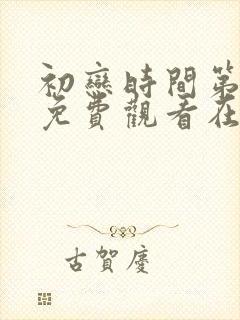 初戀時間第
免費觀看在
古賀慶